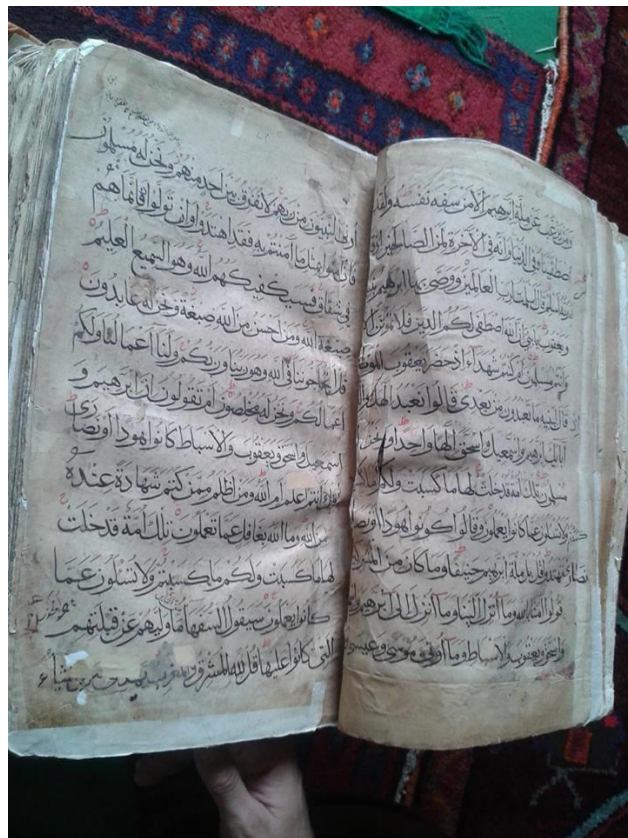 ومن يرغب عن ملة ابرهيم الا من سفه نفسه ولقد
اصطفيناه في الدنيا وانه في الآخرة لمن الصالحين اذ قال
له ربه اسلم قال اسلمت لرب العالمين ووصى بها ابرهيم بنيه
ويعقوب يا بني ان الله اصطفى لكم الدين فلا تموتن الا
وانتم مسلمون ام كنتم شهداء اذ حضر يعقوب الموت
اذ قال لبنيه ما تعبدون من بعدي قالوا نعبد الهك واله
آبائك ابرهيم واسمعيل واسحق الها واحدا ونحن له
مسلمون تلك امة قد خلت لها ما كسبت ولكم ما كسبتم
ولا تسئلون عما كانوا يعملون وقالوا كونوا هودا او نصارى
تهتدوا قل بل ملة ابرهيم حنيفا وما كان من المشركين
قولوا آمنا بالله وما انزل الينا وما انزل الى ابرهيم
واسحق ويعقوب والاسباط وما اوتي موسى وعيسى
اوتي النبيون من ربهم لا نفرق بين احد منهم ونحن له مسلمون
فان آمنوا بمثل ما آمنتم به فقد اهتدوا وان تولوا فانما هم
في شقاق فسيكفيكهم الله وهو السميع العليم
صبغة الله ومن احسن من الله صبغة ونحن له عابدون
قل اتحاجوننا في الله وهو ربنا وربكم ولنا اعمالنا ولكم
اعمالكم ونحن له مخلصون ام تقولون ان ابرهيم و
اسمعيل واسحق ويعقوب والاسباط كانوا هودا او نصارى
قل ءانتم اعلم ام الله ومن اظلم ممن كتم شهادة عنده
من الله وما الله بغافل عما تعملون تلك امة قد خلت
لها ما كسبت ولكم ما كسبتم ولا تسئلون عما
كانوا يعملون سيقول السفهاء ما وليهم عن قبلتهم
التي كانوا عليها قل لله المشرق والمغرب يهدي من يشاء